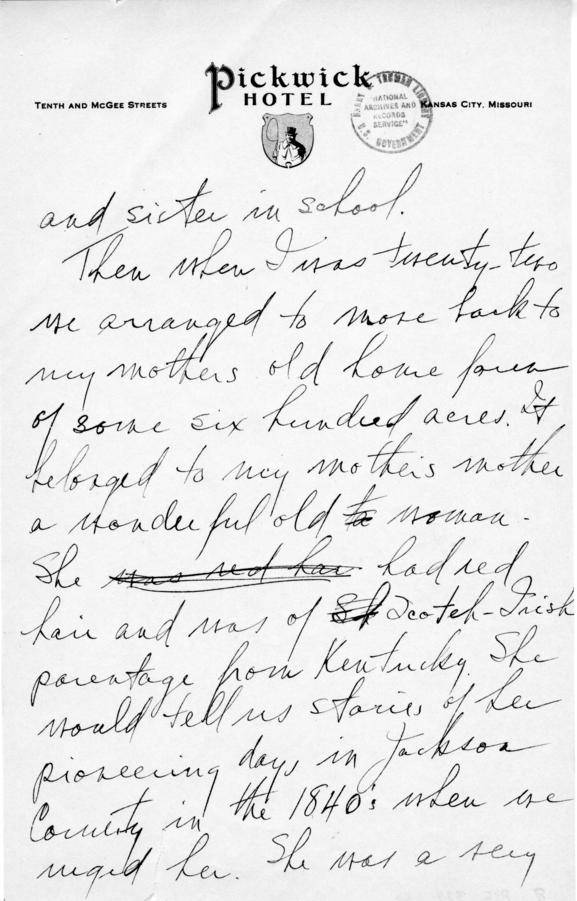 Pickwick
HOTEL
TENTH AND MCGEE STREETS
KANSAS CITY, MISSOURI
HARRY S. TRUMAN LIBRARY
"NATIONAL
ARCHIVES AND
RECORDS
SERVICE"
U.S. GOVERNMENT
and sister in school.
Then when I was twenty-two
we arranged to move back to
my mothers old home farm
of some six hundred acres. It
belonged to my mother's mother
a wonderful old to woman.
She was red hair had red
hair and was of Sh Scotch-Irish
parentage from Kentucky. She
would tell us stories of her
pioneering days in Jackson
County in the 1840's when we
urged her. She was a very